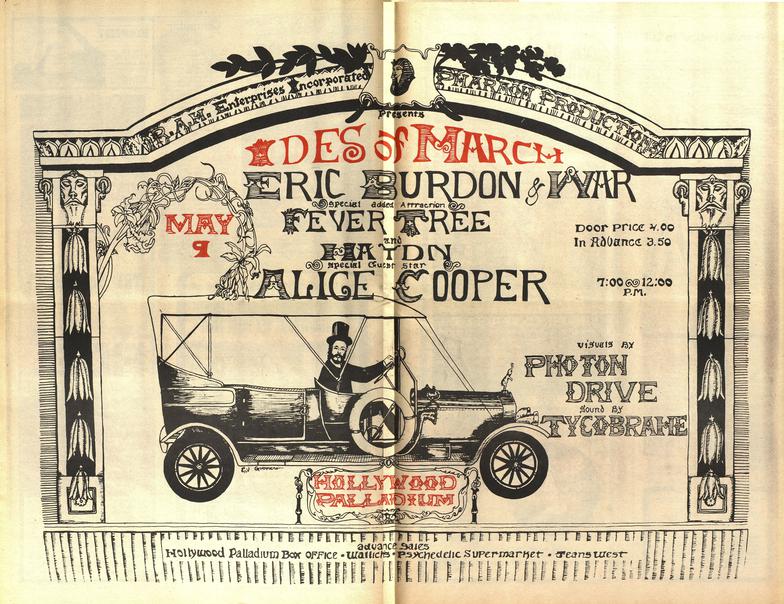 R.A.H. Enterprises Incorporated
PHARAOH PRODUCTIONS
Presents
IDES OF MARCH
ERIC BURDON & WAR
Special added Attraction
FEVER TREE
and
HAYDN
Special Guest Star
ALICE COOPER
MAY
9
Door Price 4.00
In Advance 3.50
7:00 12:00
P.M.
Visuals By
PHOTON
DRIVE
Sound By
TYCOBRAHE
HOLLYWOOD
PALLADIUM
advance sales
Hollywood Palladium Box Office • Wallichs • Psychedelic Supermarket • Jeans West